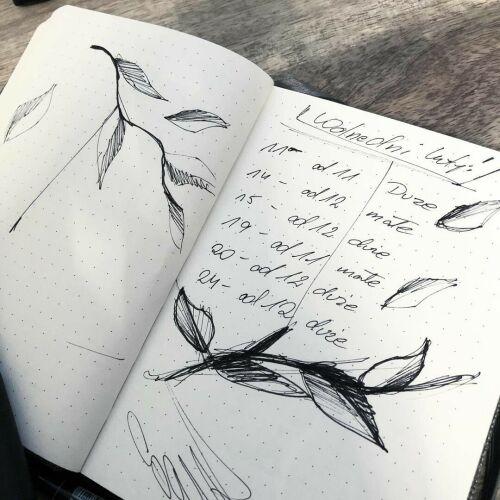 11 - od 11 Duże
14 - od 12 małe
15 - od 12 duże
19 - od 11 małe
20 - od 12 duże
24 - od 12 duże